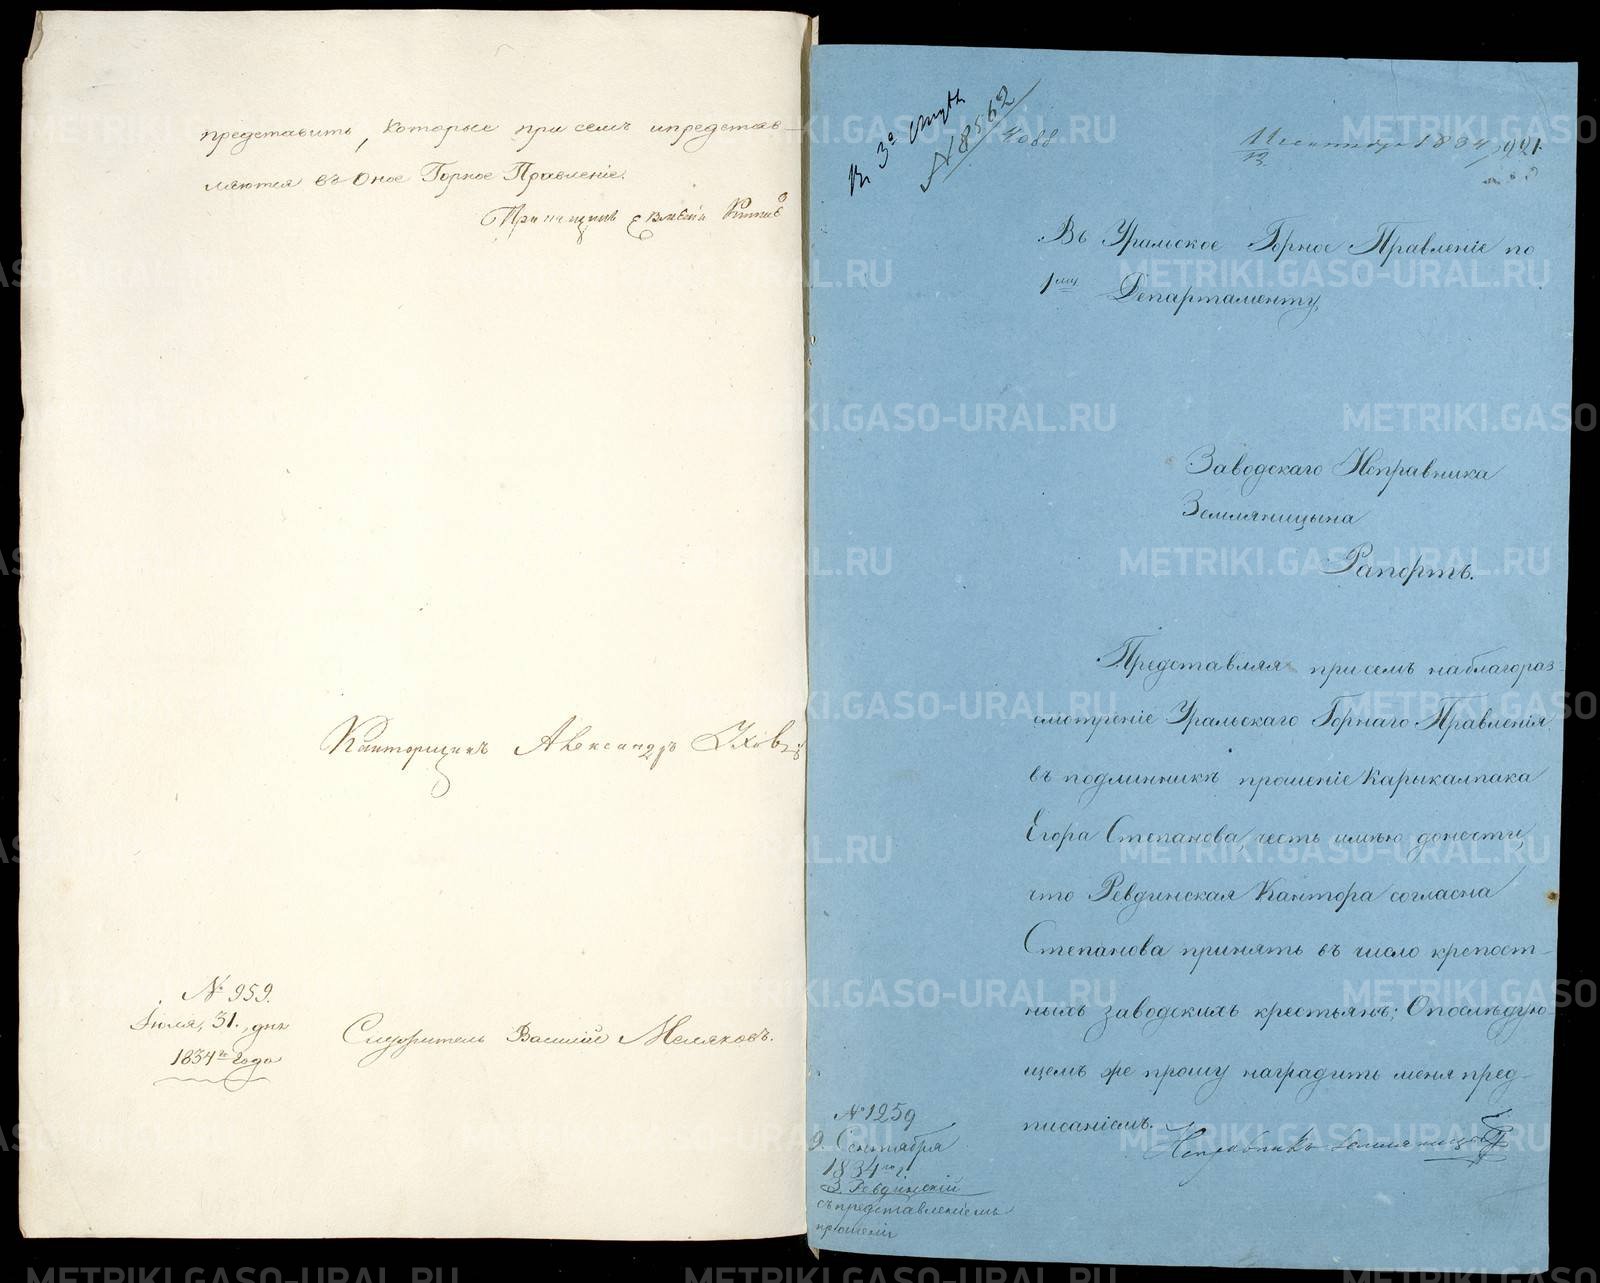 представить, которые при семъ ипредстав-
ляются въ Оное Горное Правленіе.
Прикащикъ
Канторщикъ Александръ Уховъ
№ 959.
Іюля, 31., дня
1834го Года
Смотритель Василій Меляковъ.
№ 8562
4088
11 сентября 1834
Въ Уралское Горное Правленіе по
1му Департаменту,
Заводскаго Исправника
Земляницына
Рапортъ.
Представляя при семъ наблагораз
смотреніе Уральскаго Горнаго Правленія
въ подлинникѣ прошеніе Карыкалпака
Егора Степанова, честь имѣю донести,
что Ревдинская Кантора согласна
Степанова принять въ число крепост-
ныхъ заводскихъ крестьянъ; Опослѣдую-
щемъ же прошу наградить меня пред-
писаніемъ.
Исправникъ Земляницынъ
№ 1259
9 Сентября
1834го г.
З. Ревдинскій
съ представленіемъ
прошенія
METRIKI.GASO-URAL.RU